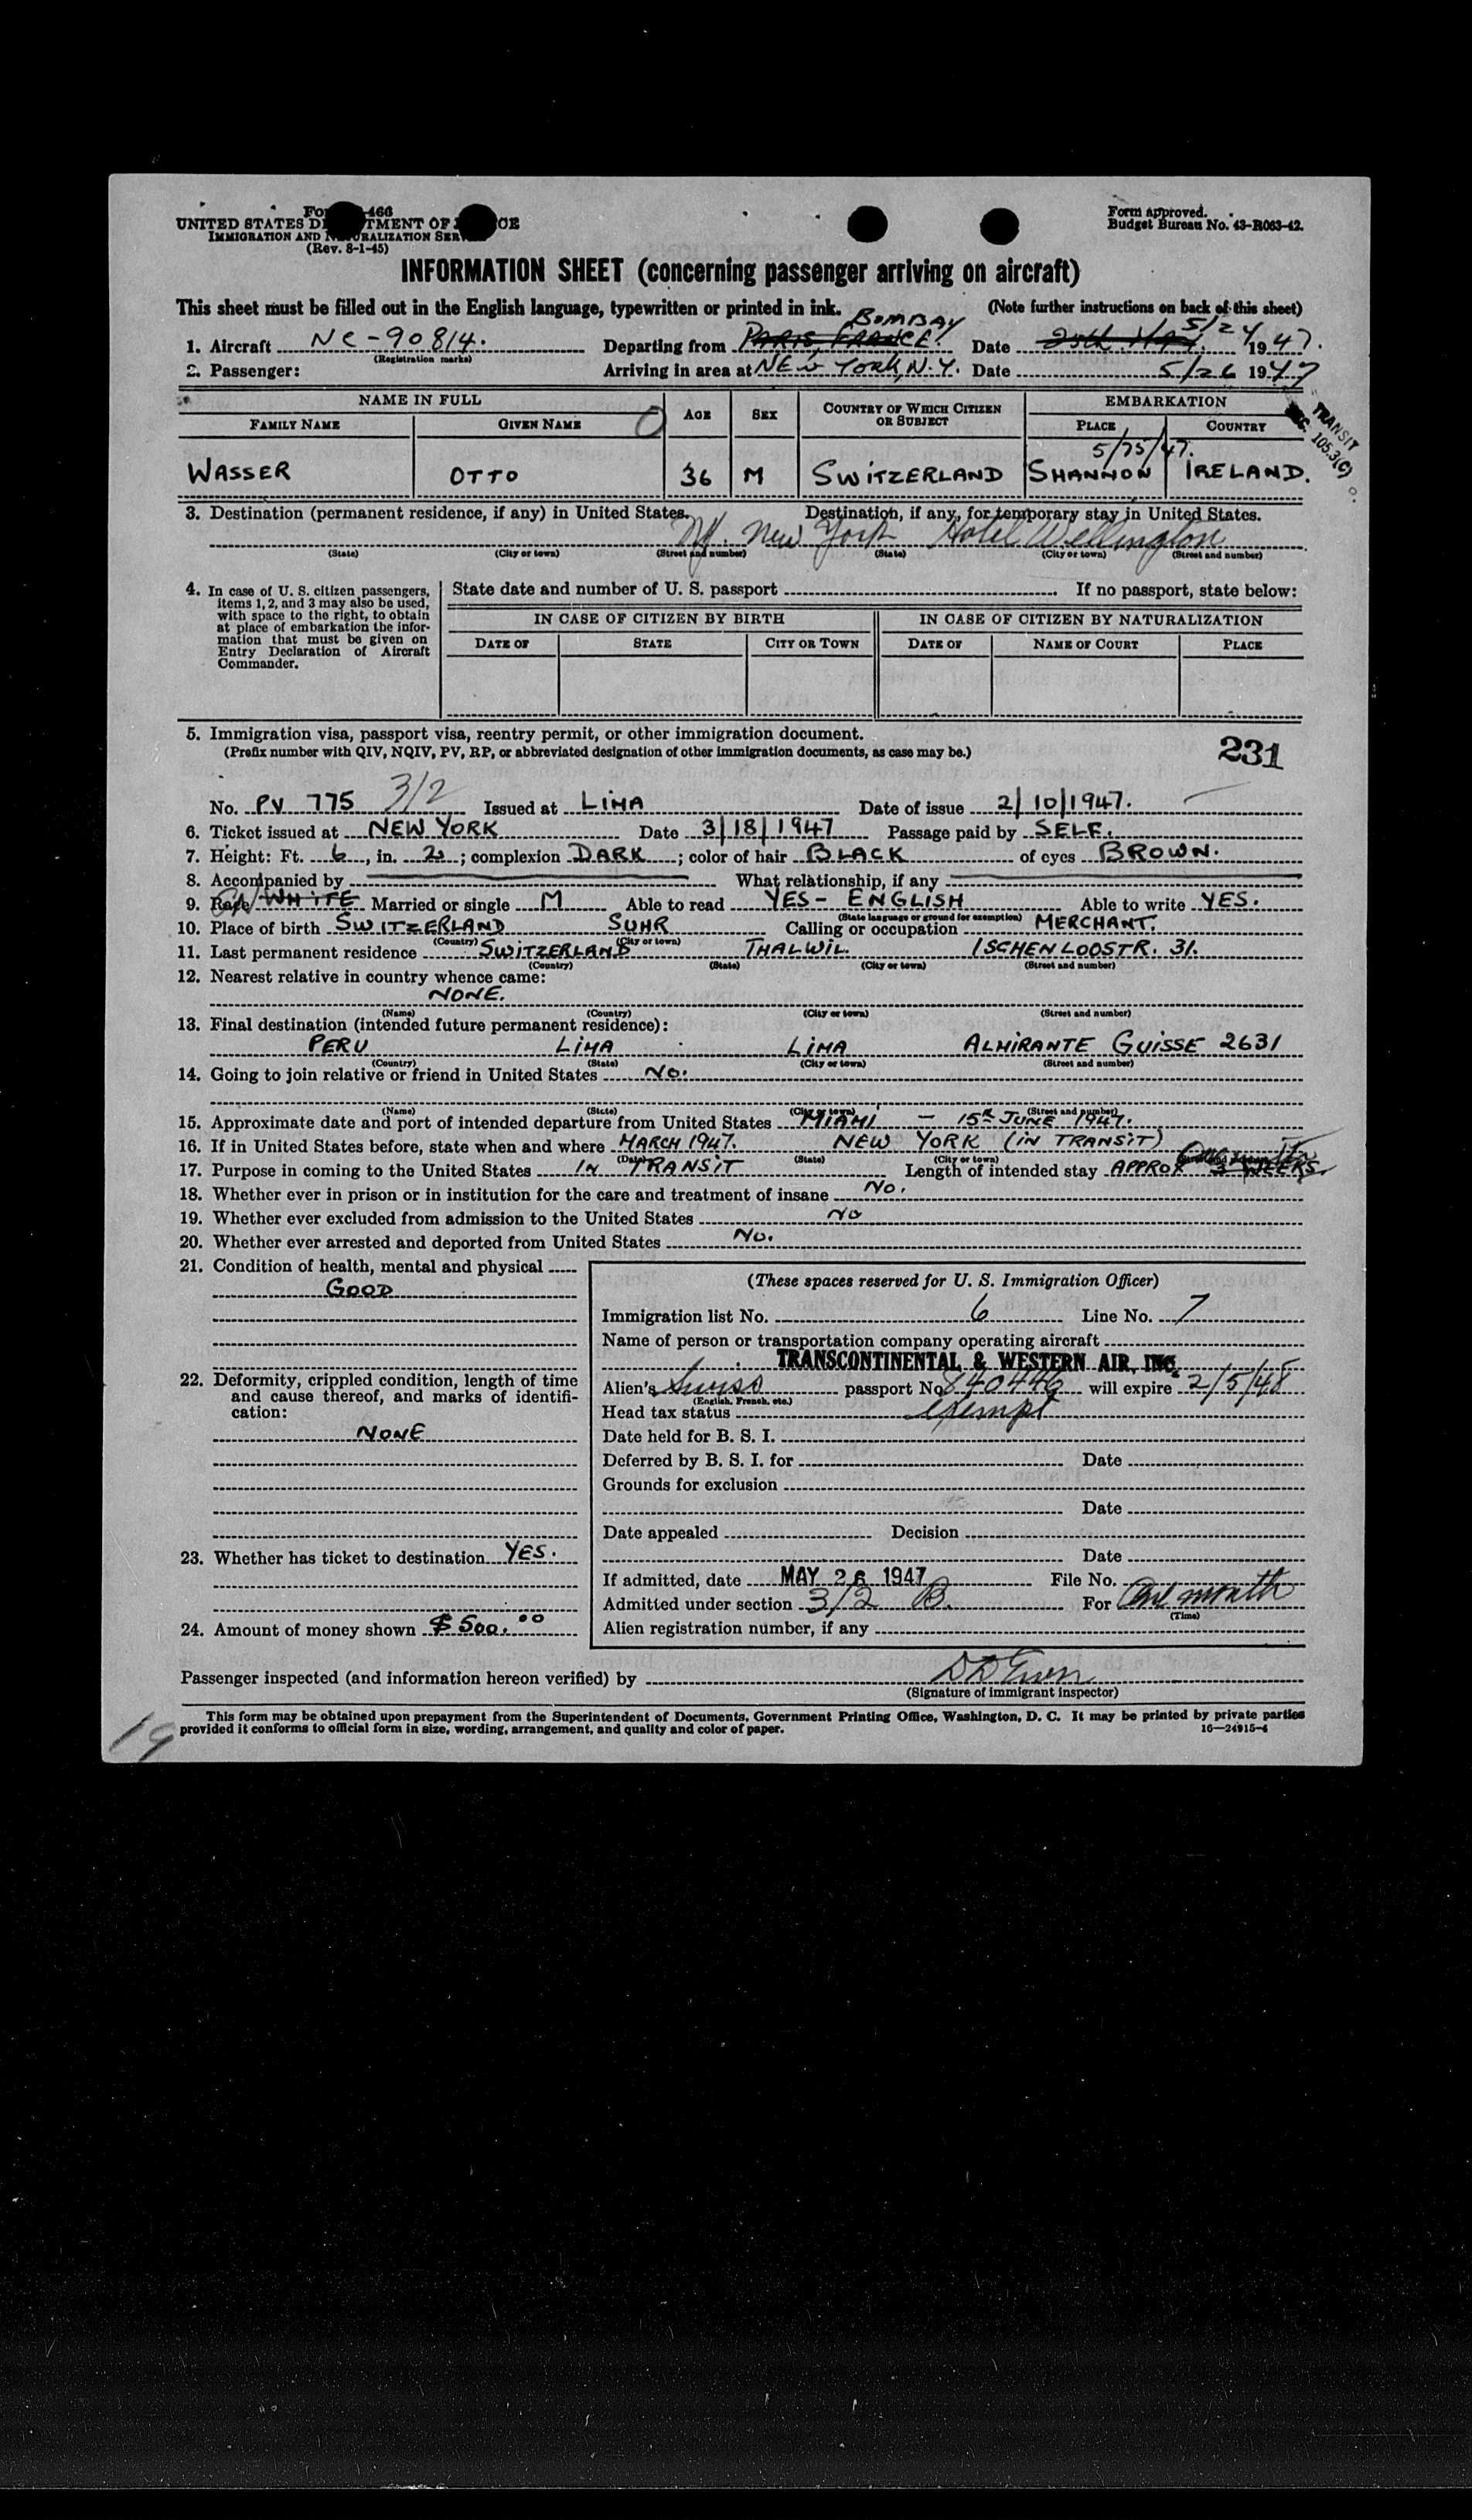 Form 466
UNITED STATES DEPARTMENT OF JUSTICE
IMMIGRATION AND NATURALIZATION SERVICE
(Rev. 8-1-45)
Form approved.
Budget Bureau No. 43-R063-42.
INFORMATION SHEET (concerning passenger arriving on aircraft)
This sheet must be filled out in the English language, typewritten or printed in ink. (Note further instructions on back of this sheet)
BOMBAY 5/24
1. Aircraft NC-90814. Departing from PARIS, FRANCE. Date 1947.
(Registration marks)
2. Passenger: Arriving in area at NEW YORK, N.Y. Date 5/26 1947
TRANSIT
105.3(C)
NAME IN FULL AGE SEX COUNTRY OF WHICH CITIZEN OR SUBJECT EMBARKATION
FAMILY NAME GIVEN NAME PLACE COUNTRY
5/25/47.
WASSER OTTO 36 M SWITZERLAND SHANNON IRELAND.
3. Destination (permanent residence, if any) in United States. Destination, if any, for temporary stay in United States.
New York Hotel Wellington
(State) (City or town) (Street and number) (State) (City or town) (Street and number)
4. In case of U. S. citizen passengers, items 1, 2, and 3 may also be used, with space to the right, to obtain at place of embarkation the information that must be given on Entry Declaration of Aircraft Commander.
State date and number of U. S. passport If no passport, state below:
IN CASE OF CITIZEN BY BIRTH IN CASE OF CITIZEN BY NATURALIZATION
DATE OF STATE CITY OR TOWN DATE OF NAME OF COURT PLACE
5. Immigration visa, passport visa, reentry permit, or other immigration document.
(Prefix number with QIV, NQIV, PV, RP, or abbreviated designation of other immigration documents, as case may be.)
231
No. PV 775 3/2 Issued at LIMA Date of issue 2/10/1947.
6. Ticket issued at NEW YORK Date 3/18/1947 Passage paid by SELF.
7. Height: Ft. 6, in. 2; complexion DARK; color of hair BLACK of eyes BROWN.
8. Accompanied by What relationship, if any
9. Race WHITE Married or single M Able to read YES - ENGLISH Able to write YES.
(State language or ground for exemption)
10. Place of birth SWITZERLAND SUHR Calling or occupation MERCHANT.
(Country) (City or town)
11. Last permanent residence SWITZERLAND THALWIL ISCHENLOOSTR. 31.
(Country) (State) (City or town) (Street and number)
12. Nearest relative in country whence came:
NONE.
(Name) (Country) (City or town) (Street and number)
13. Final destination (intended future permanent residence):
PERU LIMA LIMA ALMIRANTE GUISSE 2631
(Country) (State) (City or town) (Street and number)
14. Going to join relative or friend in United States NO.
(Name) (State) (City or town) (Street and number)
15. Approximate date and port of intended departure from United States MIAMI - 15 JUNE 1947.
16. If in United States before, state when and where MARCH 1947. NEW YORK (IN TRANSIT)
(Date) (State) (City or town)
17. Purpose in coming to the United States IN TRANSIT Length of intended stay APPROX 3 WEEKS. One month
18. Whether ever in prison or in institution for the care and treatment of insane NO.
19. Whether ever excluded from admission to the United States NO
20. Whether ever arrested and deported from United States NO.
21. Condition of health, mental and physical
GOOD
22. Deformity, crippled condition, length of time and cause thereof, and marks of identification:
NONE
23. Whether has ticket to destination YES.
24. Amount of money shown $500.00
(These spaces reserved for U. S. Immigration Officer)
Immigration list No. 6 Line No. 7
Name of person or transportation company operating aircraft
TRANSCONTINENTAL & WESTERN AIR, INC.
Alien's Swiss passport No. 840446 will expire 2/5/48
(English, French, etc.)
Head tax status exempt
Date held for B. S. I.
Deferred by B. S. I. for Date
Grounds for exclusion
Date
Date appealed Decision
Date
If admitted, date MAY 26 1947 File No.
Admitted under section 3/2 B. For One month
(Time)
Alien registration number, if any
Passenger inspected (and information hereon verified) by
(Signature of immigrant inspector)
This form may be obtained upon prepayment from the Superintendent of Documents, Government Printing Office, Washington, D. C. It may be printed by private parties
provided it conforms to official form in size, wording, arrangement, and quality and color of paper. 16—24915-4
19